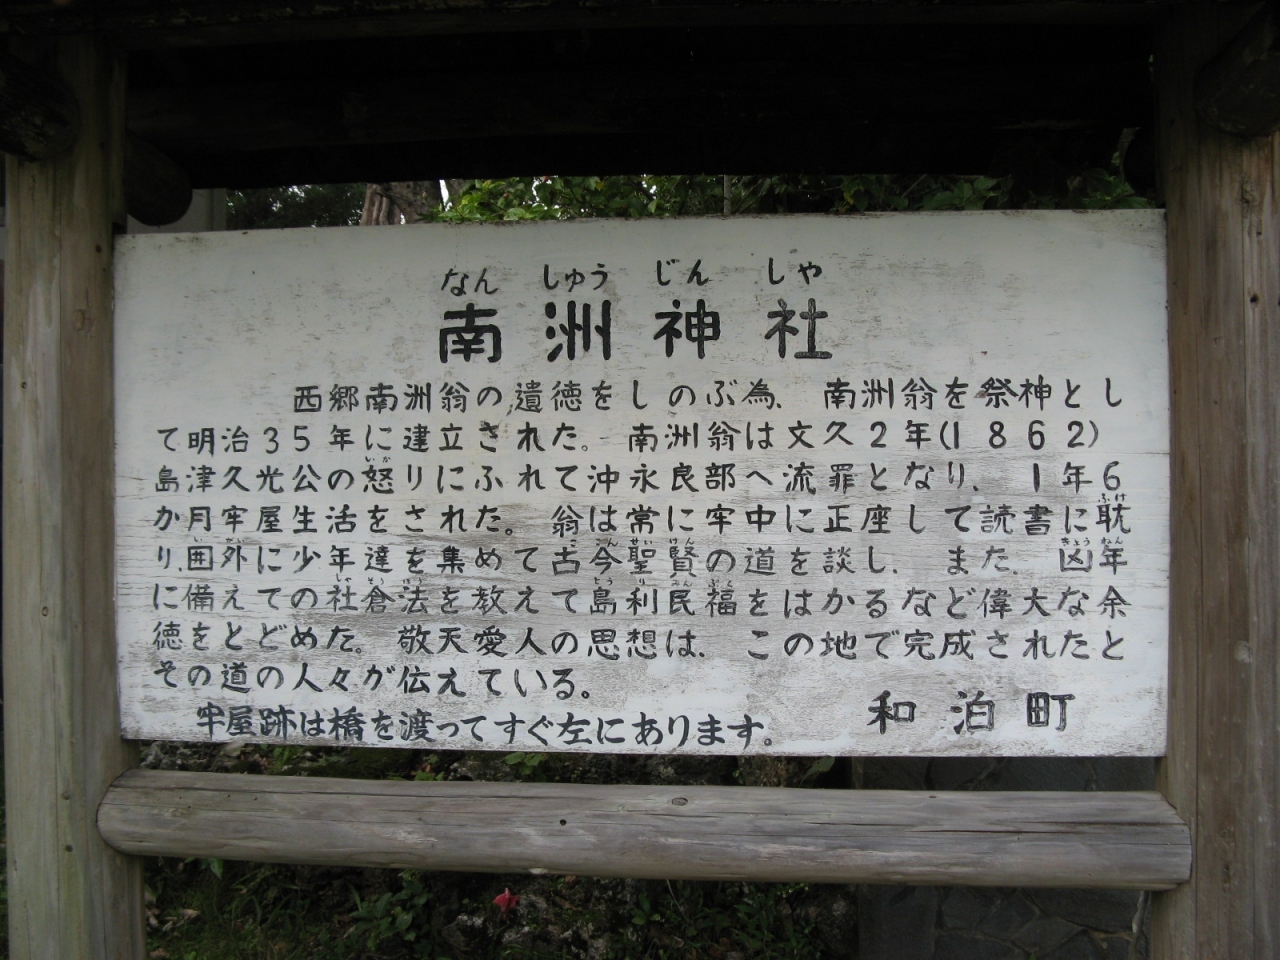 なん しゅう じん しゃ
南洲神社
西郷南洲翁の遺徳をしのぶ為、南洲翁を祭神とし
て明治35年に建立された。南洲翁は文久2年(1862)
いか
島津久光公の怒りにふれて沖永良部へ流罪となり、1年6
ふけ
か月牢屋生活をされた。翁は常に牢中に正座して読書に耽
い がい こん せい けん きょう ねん
り、囲外に少年達を集めて古今聖賢の道を談し、また、凶年
しゃ そう ほう とう り みん ふく
に備えての社倉法を教えて島利民福をはかるなど偉大な余
徳をとどめた。敬天愛人の思想は、この地で完成されたと
その道の人々が伝えている。
牢屋跡は橋を渡ってすぐ左にあります。
和泊町